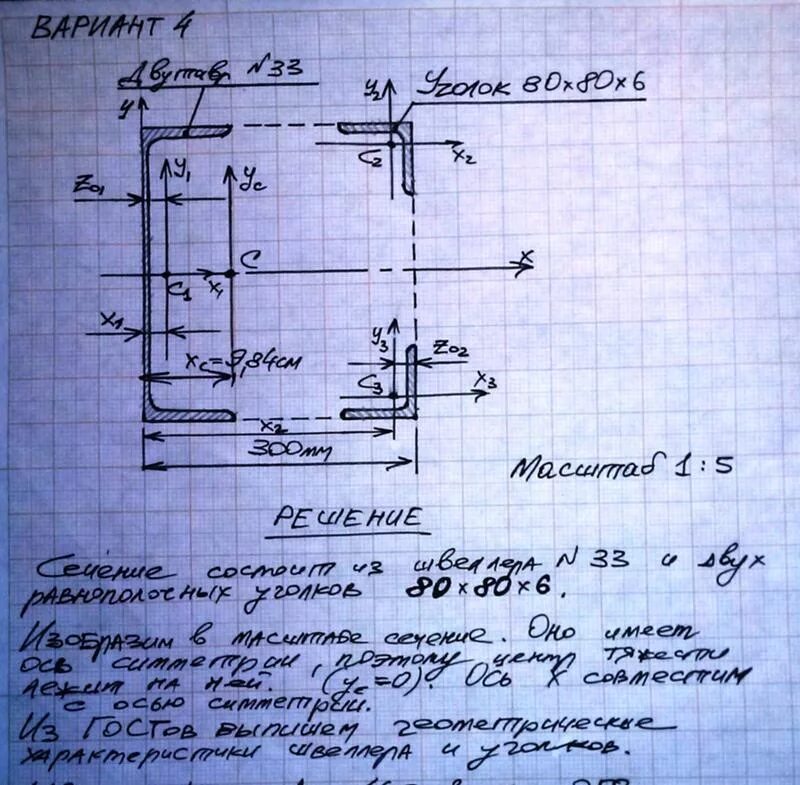 ВАРИАНТ 4
Двутавр N33
Уголок 80×80×6
y
y₂
x₂
C₂
Z₀₁
y₁
yc
C
x
C₁
x₁
x₁
y₃
Z₀₂
xc=9,84см
C₃
x₃
x₂
300мм
Масштаб 1:5
РЕШЕНИЕ
Сечение состоит из швеллера N 33 и двух
равнополочных уголков 80×80×6.
Изобразим в масштабе сечение. Оно имеет
ось симметрии, поэтому центр тяжести
лежит на ней. (yc=0). Ось X совместим
с осью симметрии.
Из ГОСТов выпишем геометрические
характеристики швеллера и уголков.